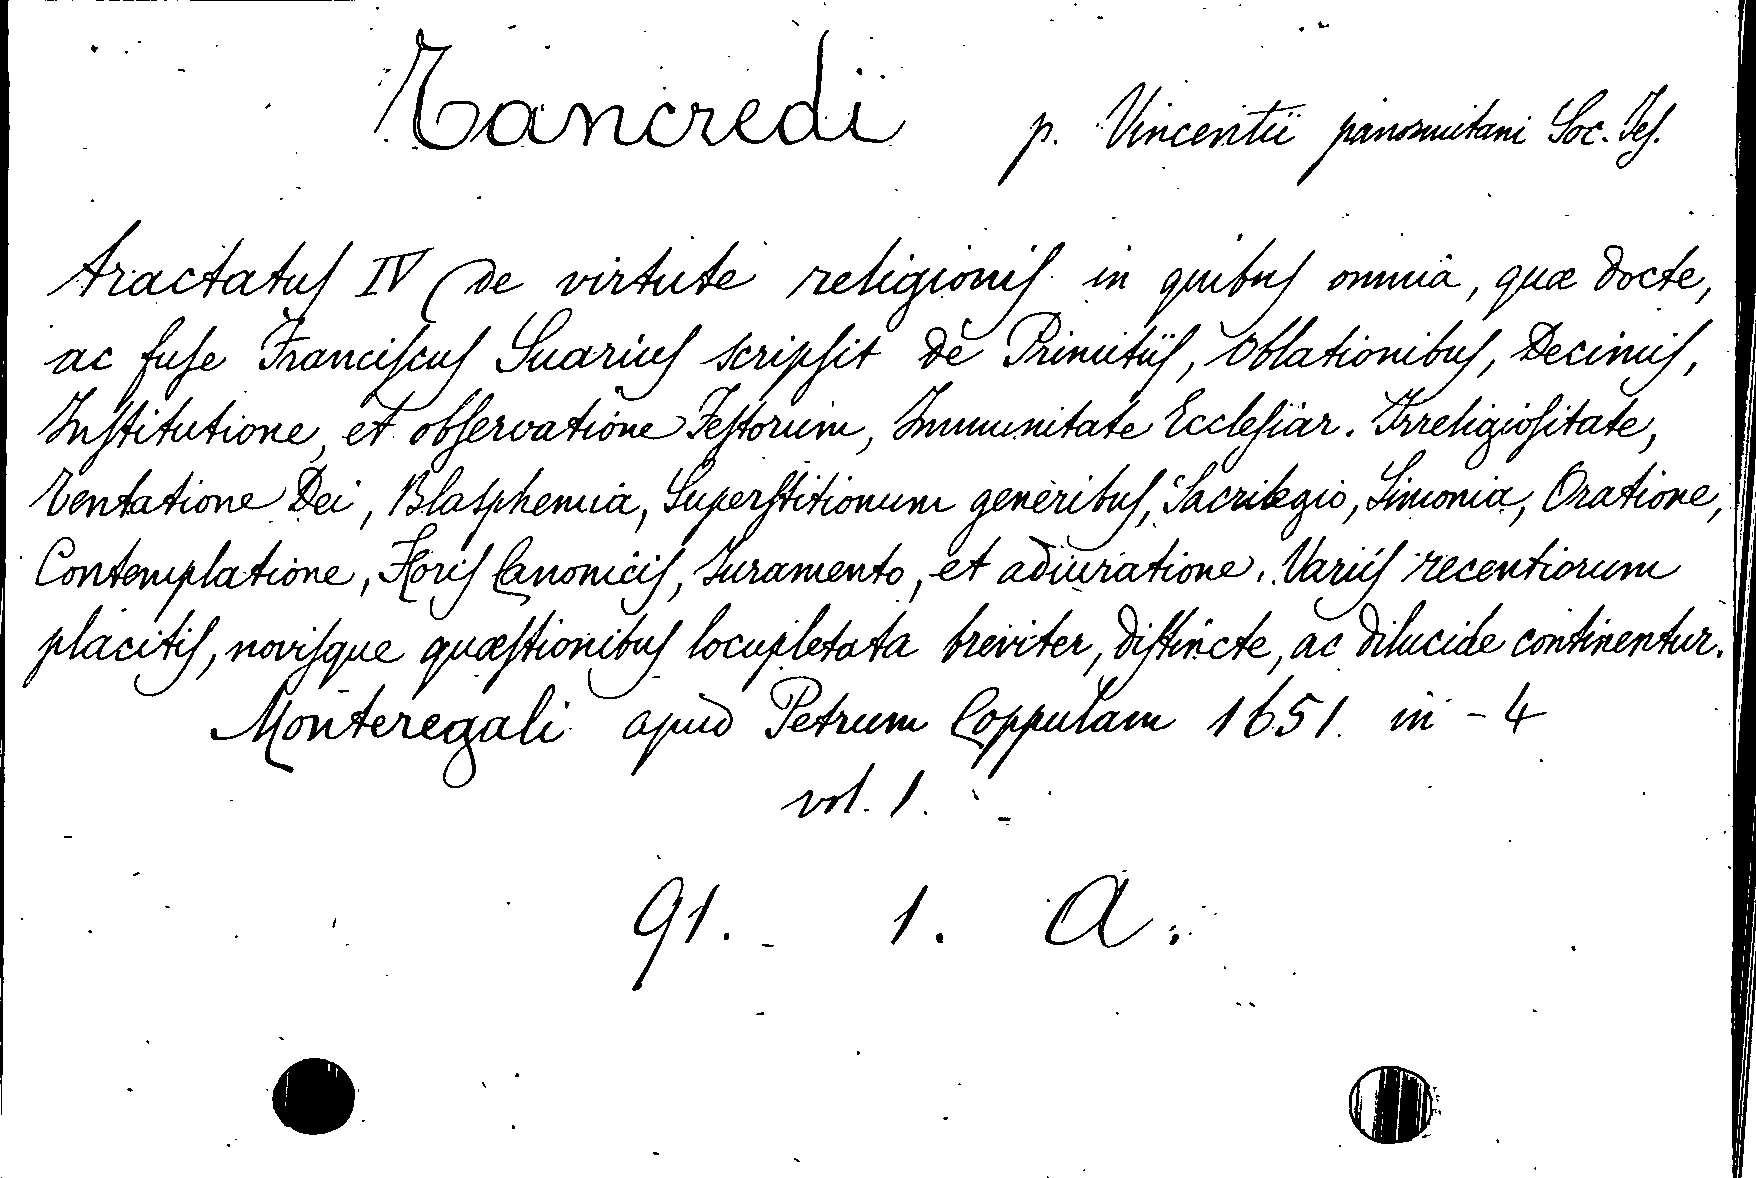 Tancredi p. Vincentii panormitani Soc. Jes.
tractatus IV de virtute religionis in quibus omnia, quæ docte,
ac fuse Franciscus Suarius scripsit de Primitiis, Oblationibus, Decimis,
Institutione, et observatione Festorum, Immunitate Ecclesiar. Irreligiositate,
Tentatione Dei, Blasphemia, Superstitionum generibus, Sacrilegio, Simonia, Oratione,
Contemplatione, Horis Canonicis, Iuramento, et adiuratione. Variis recentiorum
placitis, novisque quæstionibus locupletata breviter, distincte, ac dilucide continentur.
Monteregali apud Petrum Coppulam 1651. in-4
vol. 1.
91. 1. A.